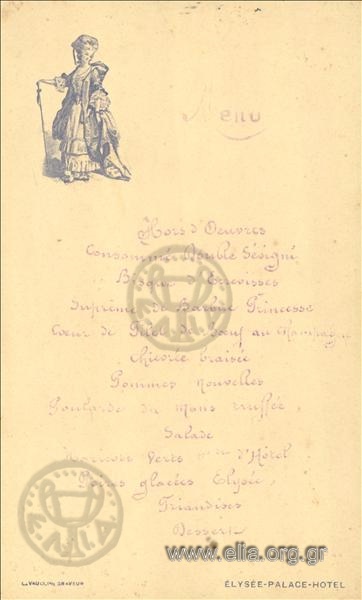 Menu
Hors d'Oeuvres
Consommé Double Sévigné
Bisque d'Ecrevisses
Suprême de Barbue Princesse
Coeur de Filet de boeuf au Champagne
Chicorée braisée
Pommes nouvelles
Poularde du Mans truffée
Salade
Haricots Verts d'Hôtel
Poires glacées Elysée
Friandises
Dessert
www.elia.org.gr
L. VAUCLIN, GRAVEUR
ÉLYSÉE-PALACE-HOTEL